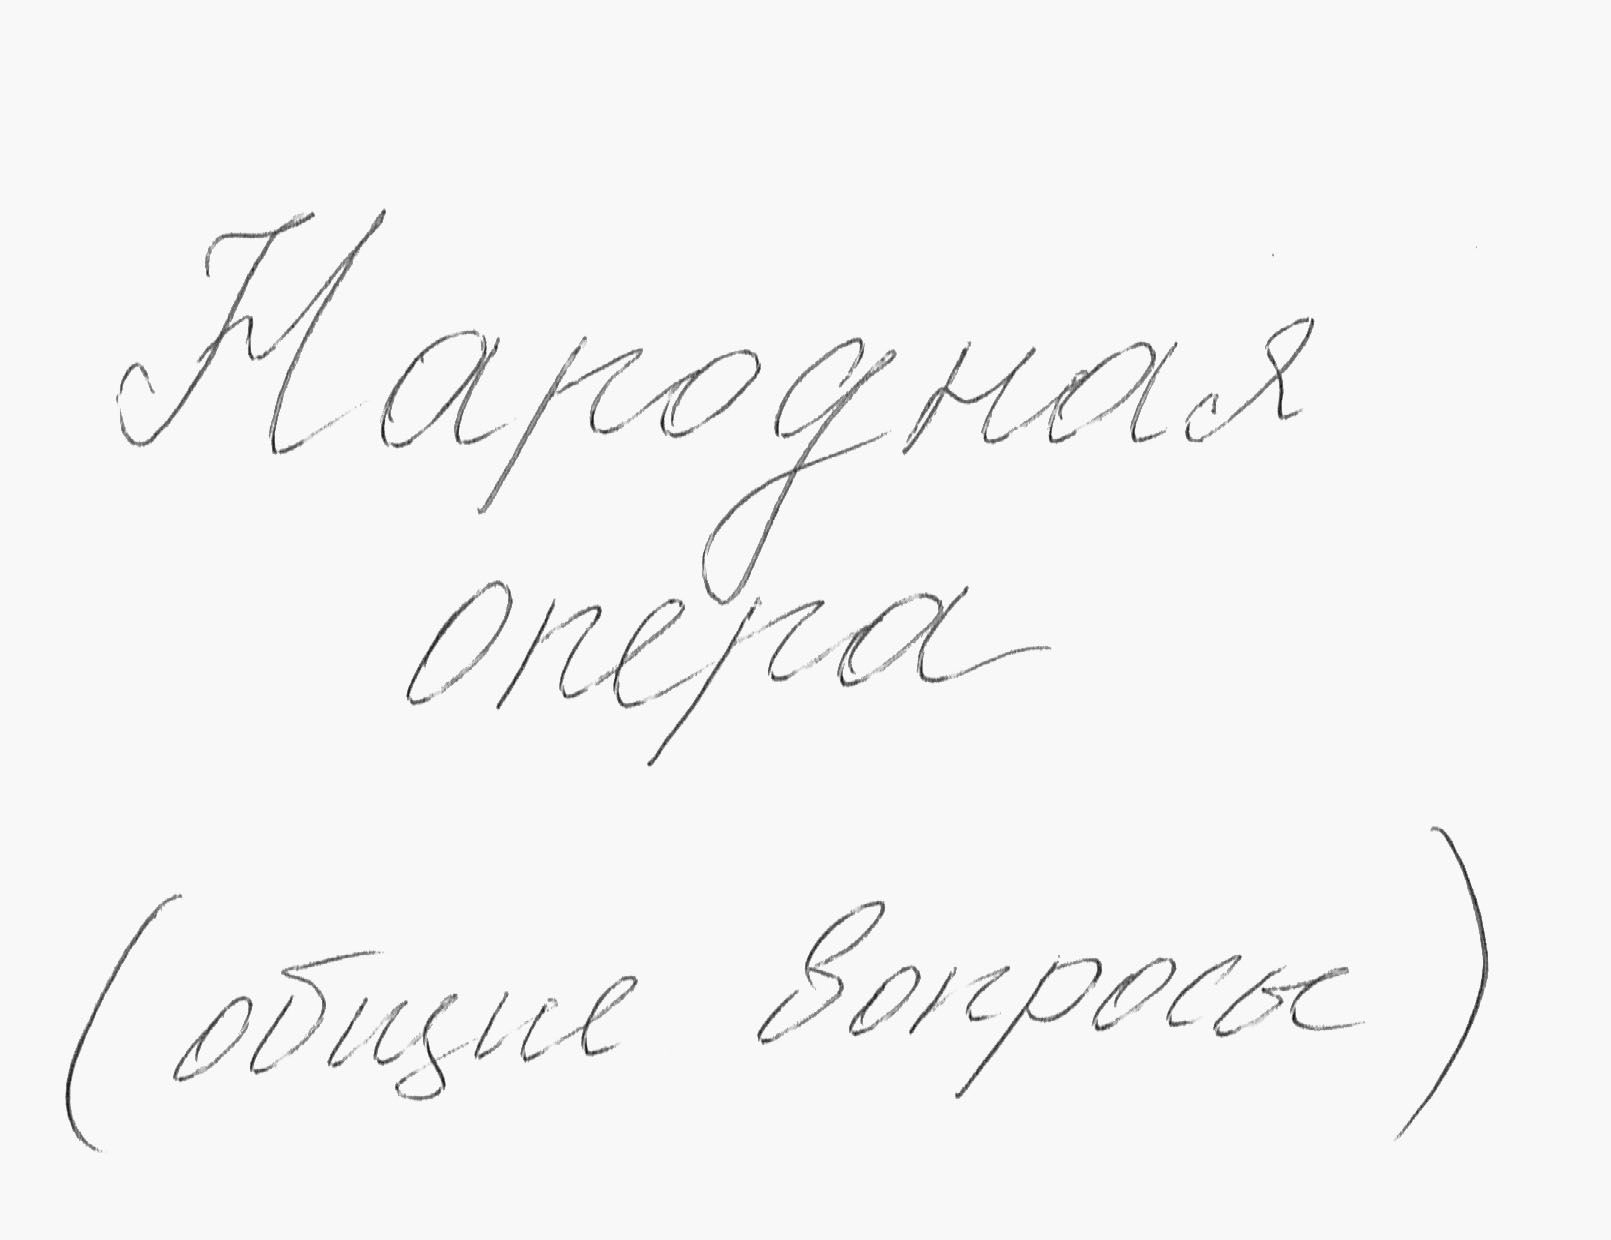 Народная
опера
(общие вопросы)